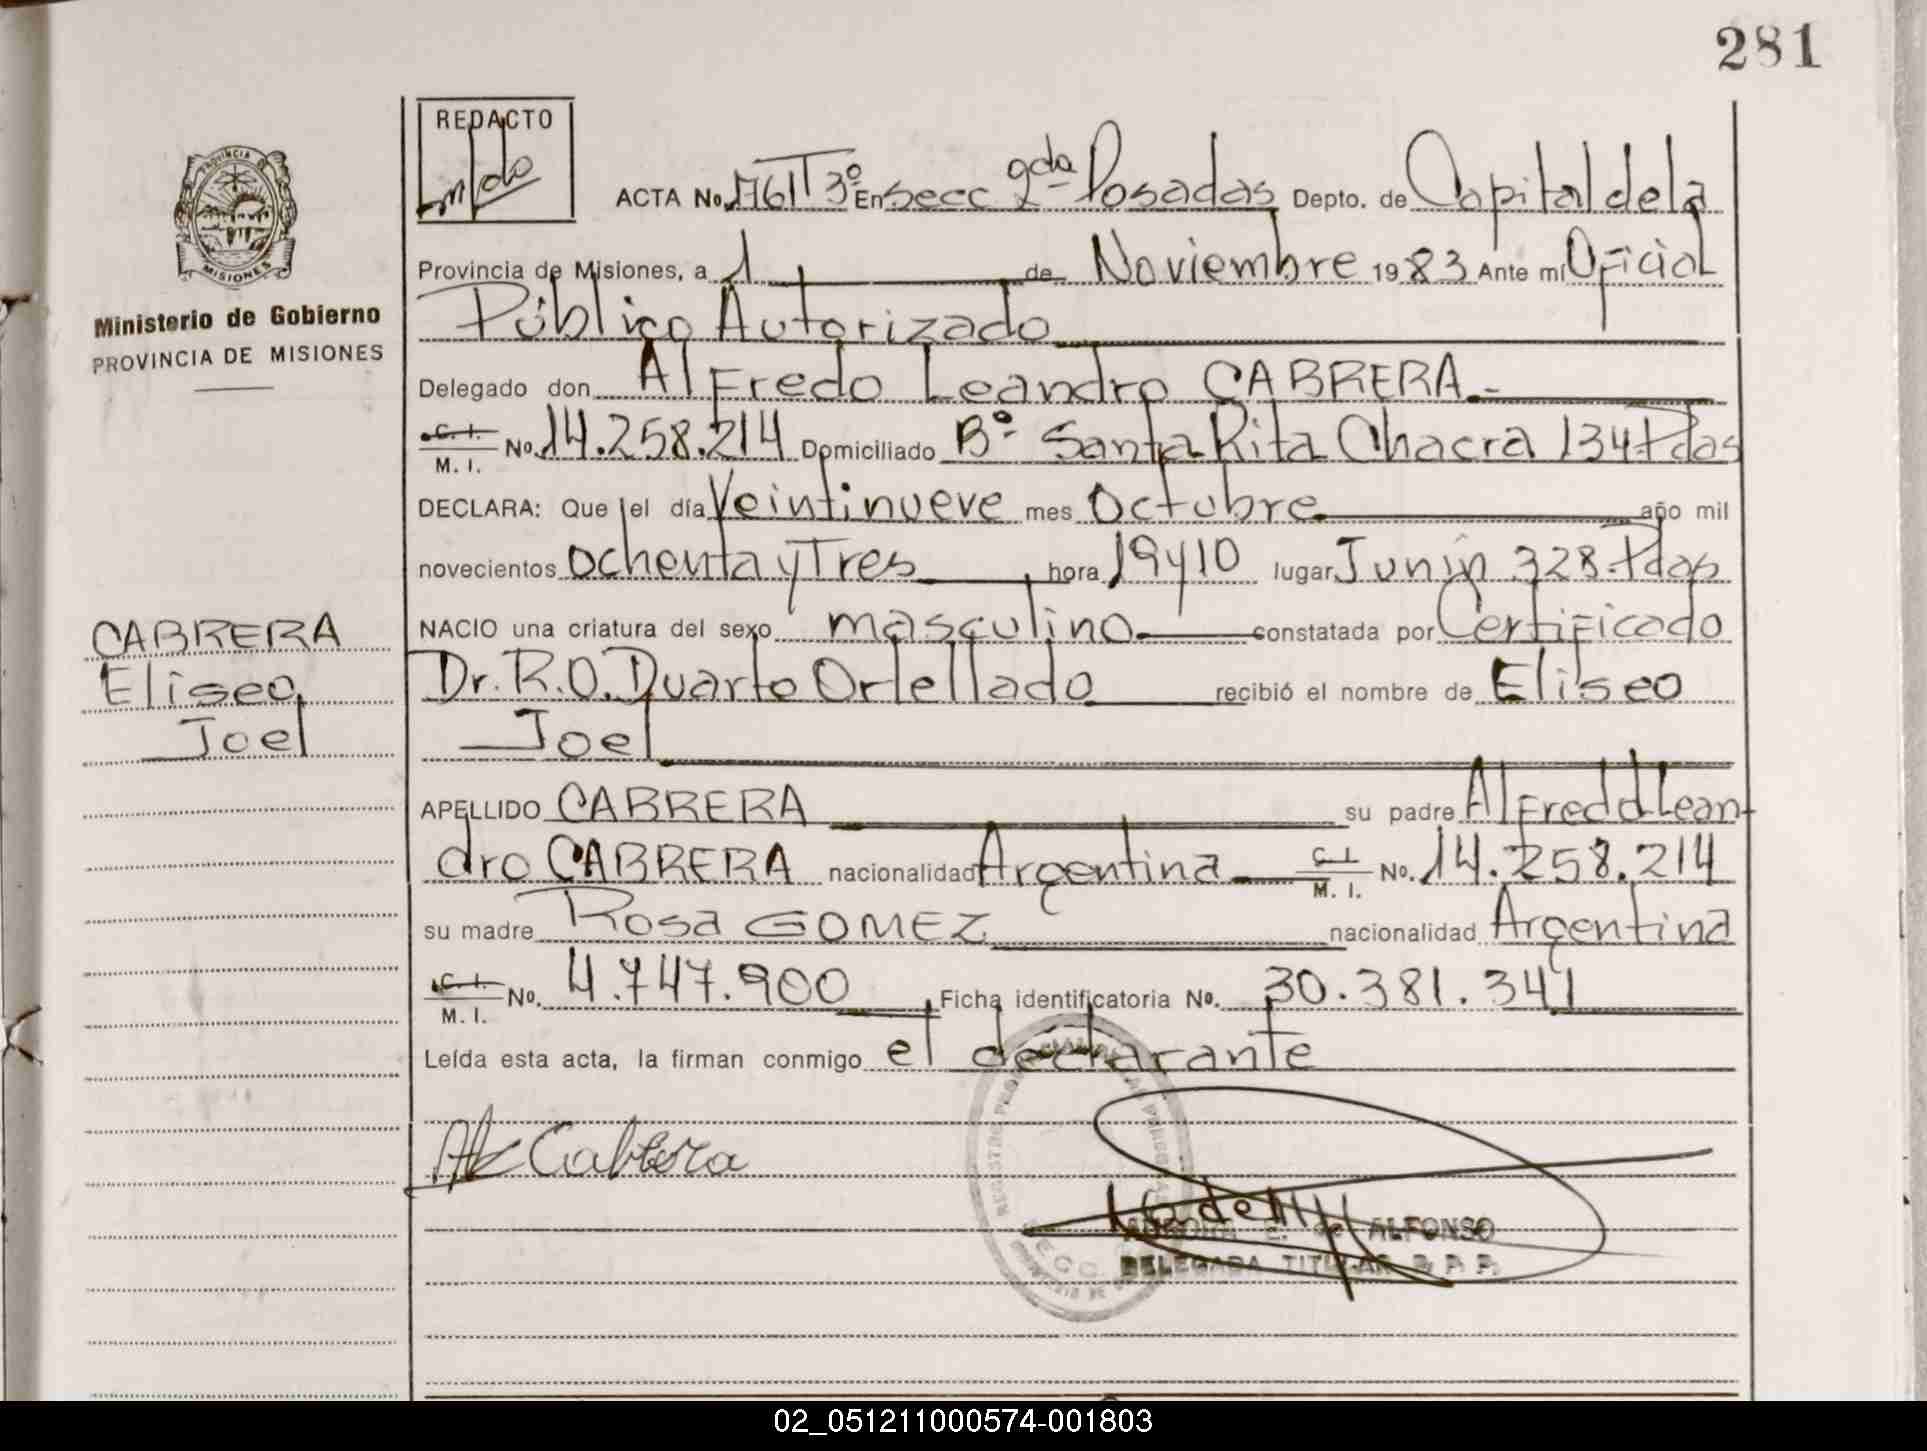 281
REDACTO
ACTA No. 1761 T 3º En Secc 2da Posadas Depto. de Capital de la
PROVINCIA DE
MISIONES
Provincia de Misiones, a 1 de Noviembre 1983 Ante mí Oficial
Ministerio de Gobierno
PROVINCIA DE MISIONES
Público Autorizado
Delegado don Alfredo Leandro CABRERA.-
C. I. M. I. No. 14.258.214 Domiciliado Bº Santa Rita Chacra 134-Pdas
DECLARA: Que el día Veintinueve mes Octubre año mil
novecientos ochenta y Tres hora 19 y 10 lugar Junín 328-Pdas
NACIO una criatura del sexo masculino constatada por Certificado
CABRERA
Eliseo
Joel
Dr. R.O. Duarte Ortellado recibió el nombre de Eliseo
Joel
APELLIDO CABRERA su padre Alfredo Lean-
dro CABRERA nacionalidad Argentina C. I. M. I. No. 14.258.214
su madre Rosa GOMEZ nacionalidad Argentina
C. I. M. I. No. 4.747.900 Ficha identificatoria No. 30.381.341
Leída esta acta, la firman conmigo el declarante
Cabrera
AURORA E. de ALFONSO
DELEGADA TITULAR R. P. P.
02_051211000574-001803